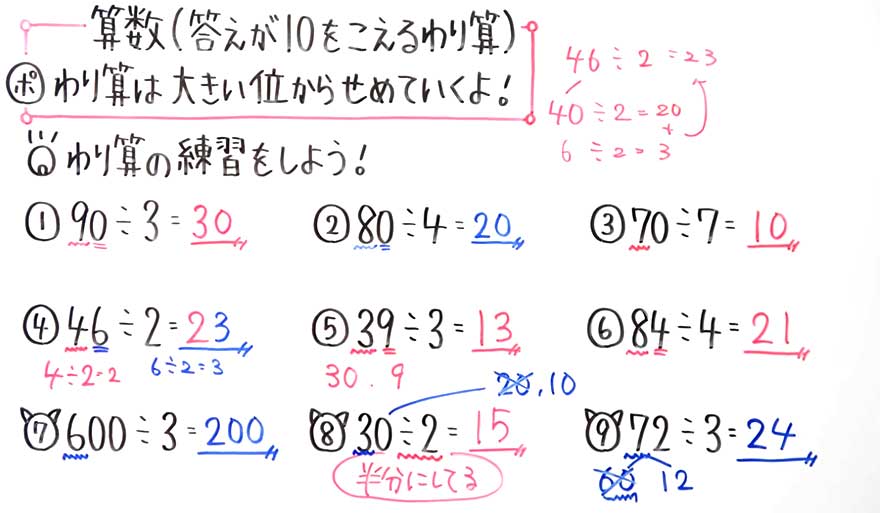 算数(答えが10をこえるわり算)
ポ わり算は大きい位からせめていくよ!
46÷2=23
40÷2=20
+
6÷2=3
わり算の練習をしよう!
① 90÷3=30
② 80÷4=20
③ 70÷7=10
④ 46÷2=23
4÷2=2 6÷2=3
⑤ 39÷3=13
30.9
⑥ 84÷4=21
⑦ 600÷3=200
20,10
⑧ 30÷2=15
半分にしてる
⑨ 72÷3=24
60 12